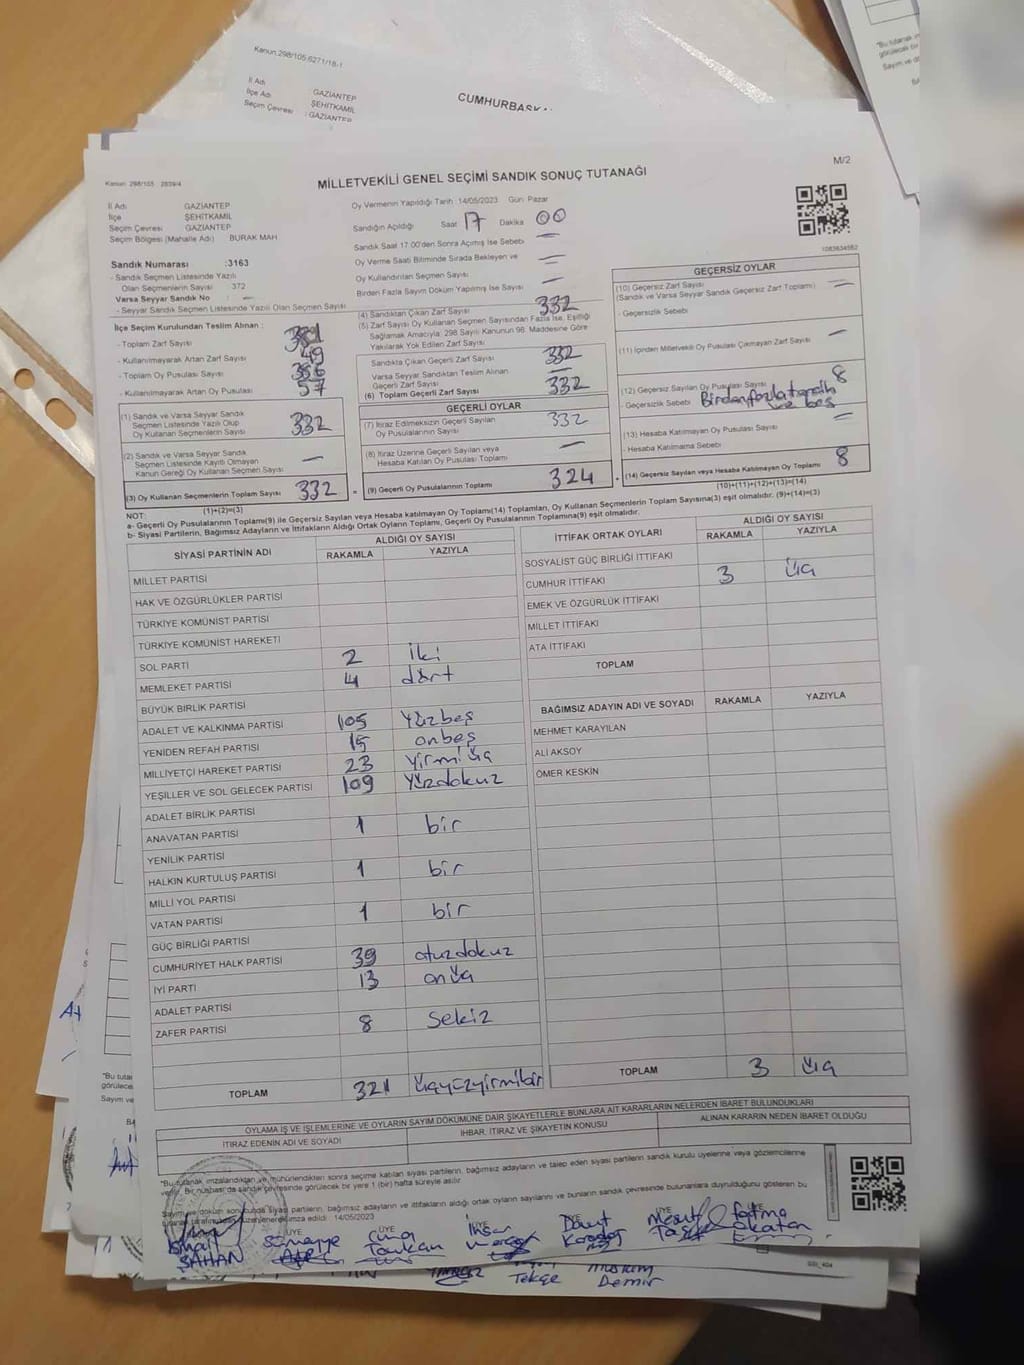 Kanun.298/105,6271/18-1
İl Adı GAZİANTEP
İlçe Adı ŞEHİTKAMİL
Seçim Çevresi : GAZİANTEP
CUMHURBAŞKA
M/2
Kanun: 298/105 2839/4
MİLLETVEKİLİ GENEL SEÇİMİ SANDIK SONUÇ TUTANAĞI
İl Adı GAZİANTEP
İlçe ŞEHİTKAMİL
Seçim Çevresi GAZİANTEP
Seçim Bölgesi (Mahalle Adı) BURAK MAH
Oy Vermenin Yapıldığı Tarih 14/05/2023 Gün Pazar
Sandığın Açıldığı Saat 17 Dakika 00
Sandık Saat 17.00'den Sonra Açılmış İse Sebebi —
Oy Verme Saati Bitiminde Sırada Bekleyen ve
Oy Kullandırılan Seçmen Sayısı
Birden Fazla Sayım Döküm Yapılmış İse Sayısı —
Sandık Numarası :3163
- Sandık Seçmen Listesinde Yazılı
Olan Seçmenlerin Sayısı : 372
Varsa Seyyar Sandık No : —
- Seyyar Sandık Seçmen Listesinde Yazılı Olan Seçmen Sayısı
İlçe Seçim Kurulundan Teslim Alınan :
- Toplam Zarf Sayısı
- Kullanılmayarak Artan Zarf Sayısı 49
- Toplam Oy Pusulası Sayısı
- Kullanılmayarak Artan Oy Pusulası 57
(1) Sandık ve Varsa Seyyar Sandık
Seçmen Listesinde Yazılı Olup
Oy Kullanan Seçmenlerin Sayısı 332
(2) Sandık ve Varsa Seyyar Sandık
Seçmen Listesinde Kayıtlı Olmayan
Kanun Gereği Oy Kullanan Seçmen Sayısı —
(3) Oy Kullanan Seçmenlerin Toplam Sayısı 332
(1)+(2)=(3)
(4) Sandıktan Çıkan Zarf Sayısı 332
(5) Zarf Sayısı Oy Kullanan Seçmen Sayısından Fazla İse, Eşitliği
Sağlamak Amacıyla; 298 Sayılı Kanunun 98. Maddesine Göre
Yakılarak Yok Edilen Zarf Sayısı
Sandıkta Çıkan Geçerli Zarf Sayısı 332
Varsa Seyyar Sandıktan Teslim Alınan
Geçerli Zarf Sayısı —
(6) Toplam Geçerli Zarf Sayısı 332
GEÇERLİ OYLAR
(7) İtiraz Edilmeksizin Geçerli Sayılan
Oy Pusulalarının Sayısı 332
(8) İtiraz Üzerine Geçerli Sayılan veya
Hesaba Katılan Oy Pusulası Toplamı —
(9) Geçerli Oy Pusulalarının Toplamı 324
1083634582
GEÇERSİZ OYLAR
(10) Geçersiz Zarf Sayısı
(Sandık ve Varsa Seyyar Sandık Geçersiz Zarf Toplamı)
- Geçersizlik Sebebi
(11) İçinden Milletvekili Oy Pusulası Çıkmayan Zarf Sayısı —
(12) Geçersiz Sayılan Oy Pusulası Sayısı 8
- Geçersizlik Sebebi Birden fazla tercih
ve boş
(13) Hesaba Katılmayan Oy Pusulası Sayısı
- Hesaba Katılmama Sebebi
(14) Geçersiz Sayılan veya Hesaba Katılmayan Oy Toplamı 8
(10)+(11)+(12)+(13)=(14)
NOT:
a- Geçerli Oy Pusulalarının Toplamı(9) ile Geçersiz Sayılan veya Hesaba katılmayan Oy Toplamı(14) Toplamları, Oy Kullanan Seçmenlerin Toplam Sayısına(3) eşit olmalıdır. (9)+(14)=(3)
b- Siyasi Partilerin, Bağımsız Adayların ve İttifakların Aldığı Ortak Oyların Toplamı, Geçerli Oy Pusulalarının Toplamına(9) eşit olmalıdır.
SİYASİ PARTİNİN ADI ALDIĞI OY SAYISI
RAKAMLA YAZIYLA
MİLLET PARTİSİ
HAK VE ÖZGÜRLÜKLER PARTİSİ
TÜRKİYE KOMÜNİST PARTİSİ
TÜRKİYE KOMÜNİST HAREKETİ
SOL PARTİ 2 iki
MEMLEKET PARTİSİ 4 dört
BÜYÜK BİRLİK PARTİSİ
ADALET VE KALKINMA PARTİSİ 105 Yüzbeş
YENİDEN REFAH PARTİSİ 15 onbeş
MİLLİYETÇİ HAREKET PARTİSİ 23 yirmiüç
YEŞİLLER VE SOL GELECEK PARTİSİ 109 Yüzdokuz
ADALET BİRLİK PARTİSİ
ANAVATAN PARTİSİ 1 bir
YENİLİK PARTİSİ
HALKIN KURTULUŞ PARTİSİ 1 bir
MİLLİ YOL PARTİSİ
VATAN PARTİSİ 1 bir
GÜÇ BİRLİĞİ PARTİSİ
CUMHURİYET HALK PARTİSİ 39 otuzdokuz
İYİ PARTİ 13 onüç
ADALET PARTİSİ
ZAFER PARTİSİ 8 sekiz
TOPLAM 321 üçyüzyirmibir
İTTİFAK ORTAK OYLARI ALDIĞI OY SAYISI
RAKAMLA YAZIYLA
SOSYALİST GÜÇ BİRLİĞİ İTTİFAKI
CUMHUR İTTİFAKI 3 üç
EMEK VE ÖZGÜRLÜK İTTİFAKI
MİLLET İTTİFAKI
ATA İTTİFAKI
TOPLAM
BAĞIMSIZ ADAYIN ADI VE SOYADI RAKAMLA YAZIYLA
MEHMET KARAYILAN
ALİ AKSOY
ÖMER KESKİN
TOPLAM 3 üç
OYLAMA İŞ VE İŞLEMLERİNE VE OYLARIN SAYIM DÖKÜMÜNE DAİR ŞİKAYETLERLE BUNLARA AİT KARARLARIN NELERDEN İBARET BULUNDUKLARI
İTİRAZ EDENİN ADI VE SOYADI İHBAR, İTİRAZ VE ŞİKAYETİN KONUSU ALINAN KARARIN NEDEN İBARET OLDUĞU
"Bu tutanak imzalandıktan ve mühürlendikten sonra seçime katılan siyasi partilerin, bağımsız adayların ve talep eden siyasi partilerin sandık kurulu üyelerine veya gözlemcilerine
verilir. Bir nüshası da sandık çevresinde görülecek bir yere 1 (bir) hafta süreyle asılır
Sayım ve döküm sonucunda siyasi partilerin, bağımsız adayların ve ittifakların aldığı ortak oyların sayılarını ve bunların sandık çevresinde bulunanlara duyurulduğunu gösteren bu
tutanak tarafımızdan düzenlenerek imza edildi. 14/05/2023
ÜYE ÜYE ÜYE ÜYE ÜYE ÜYE
İsmail ŞAHAN
Davut
Mesut
fatma
Tekçe
Demir